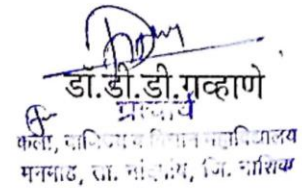 डॉ.डी.डी.गव्हाणे
प्राचार्य
कला, वाणिज्य व विज्ञान महाविद्यालय
मनमाड, ता. नांदगांव, जि. नाशिक